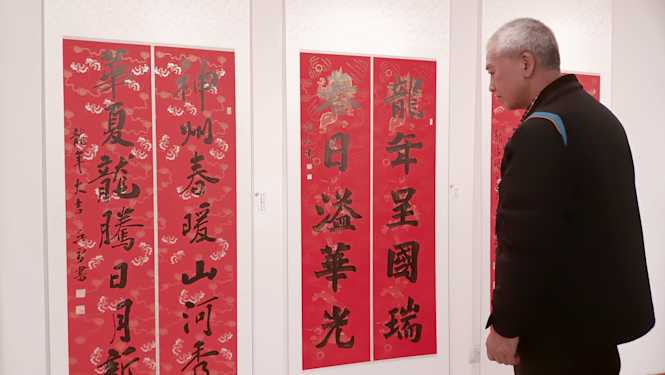 神州春暖山河秀
華夏龍騰日月新
龍年大吉
龍年呈國瑞
春日溢華光